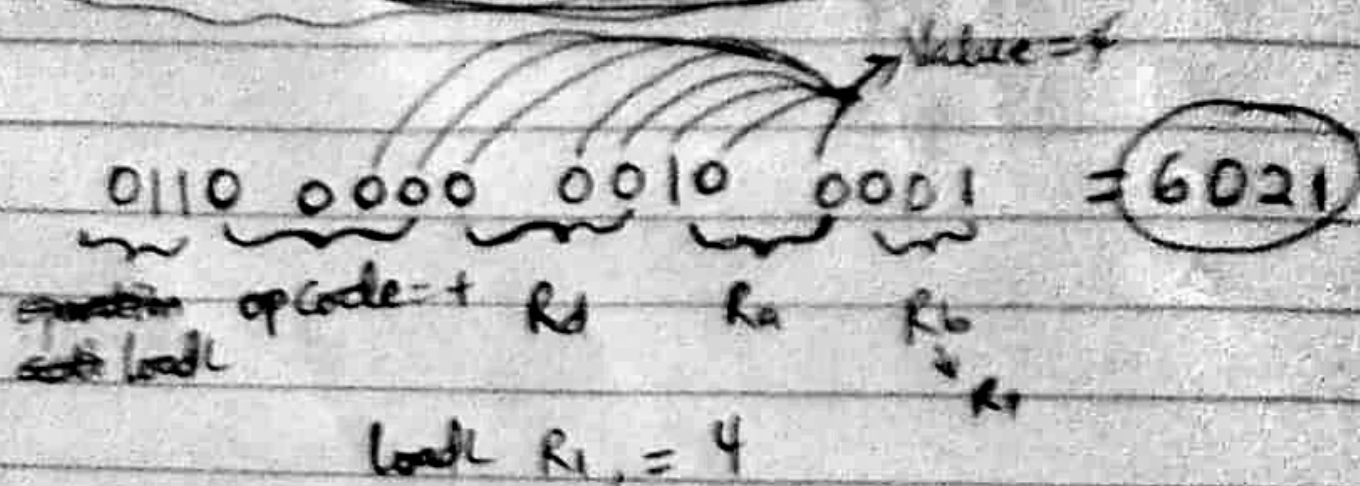 Value = 4
0110 0000 0010 0001 = 6021
opcode = + Rd Ra Rb
loadL
R1
loadL R1 = 4